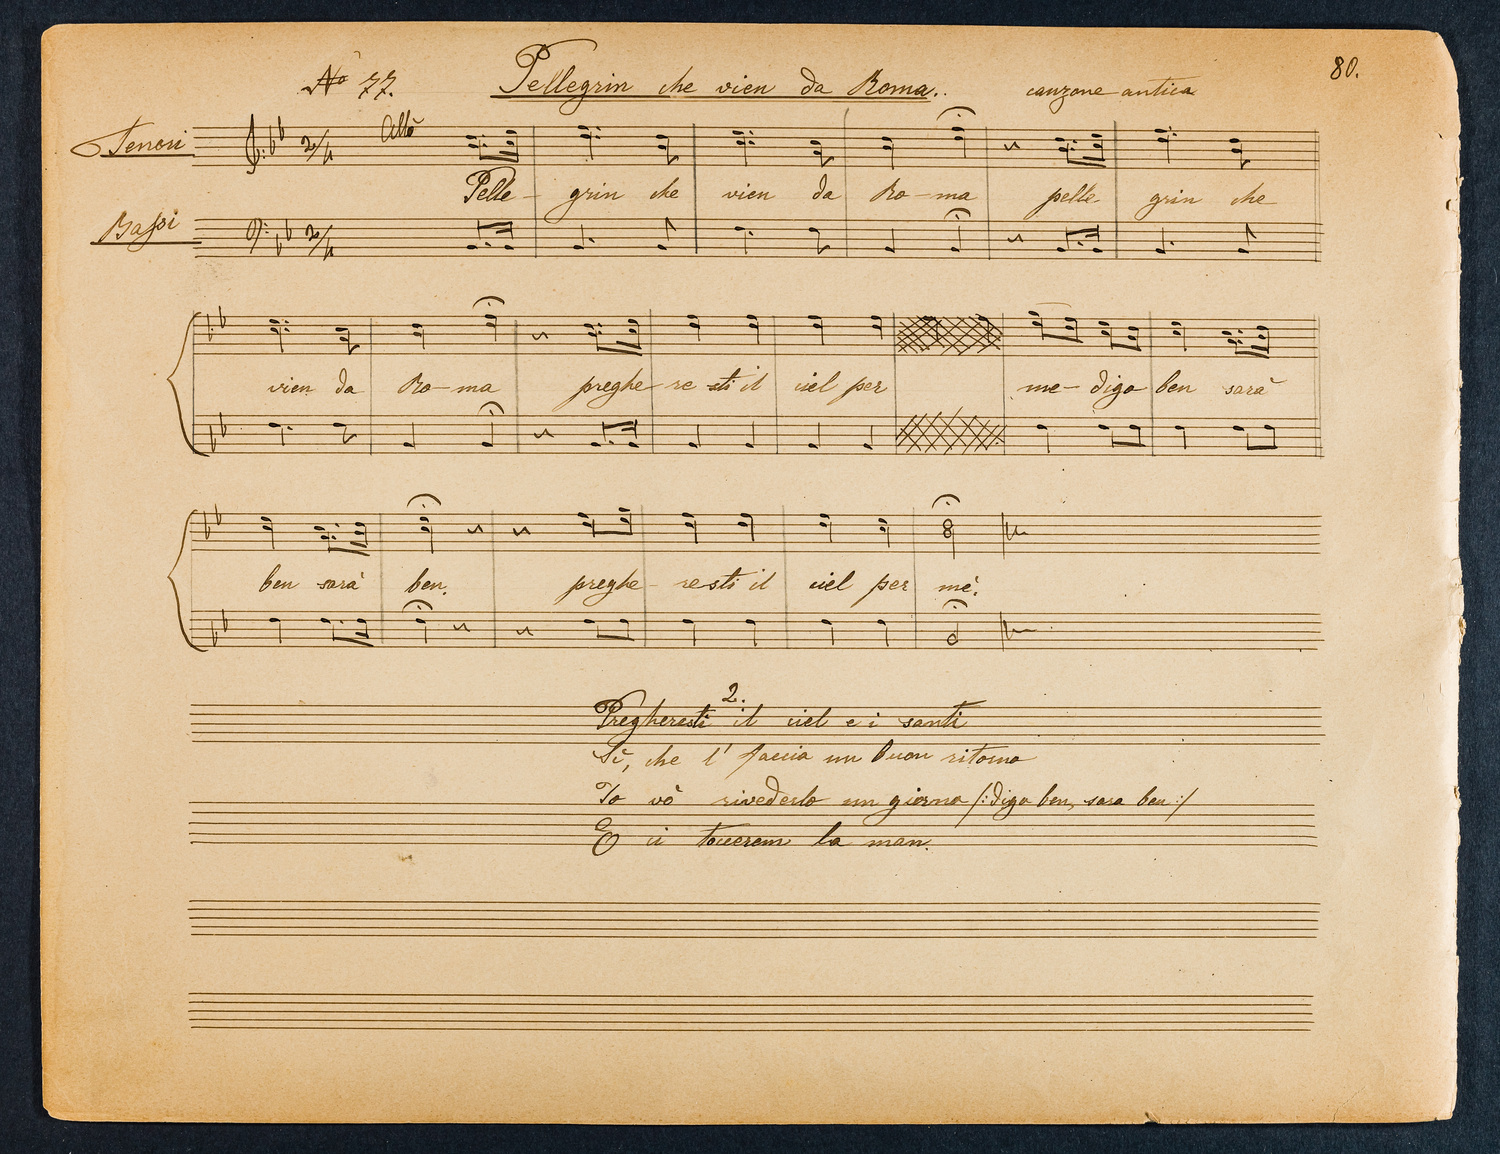 No 77. Pellegrin che vien da Roma. canzone antica 80.
Tenori Allo
Pelle - grin che vien da Ro - ma pelle - grin che
Bassi
vien da Ro - ma preghe - re sti il ciel per me - digo ben sarà
ben sarà ben. preghe - resti il ciel per mè.
2.
Pregheresti il ciel e i santi
Sì, che l' faccia un buon ritorno
Io vò rivederlo un giorno /: digo ben, sara ben :/
E ci toccerem la man.